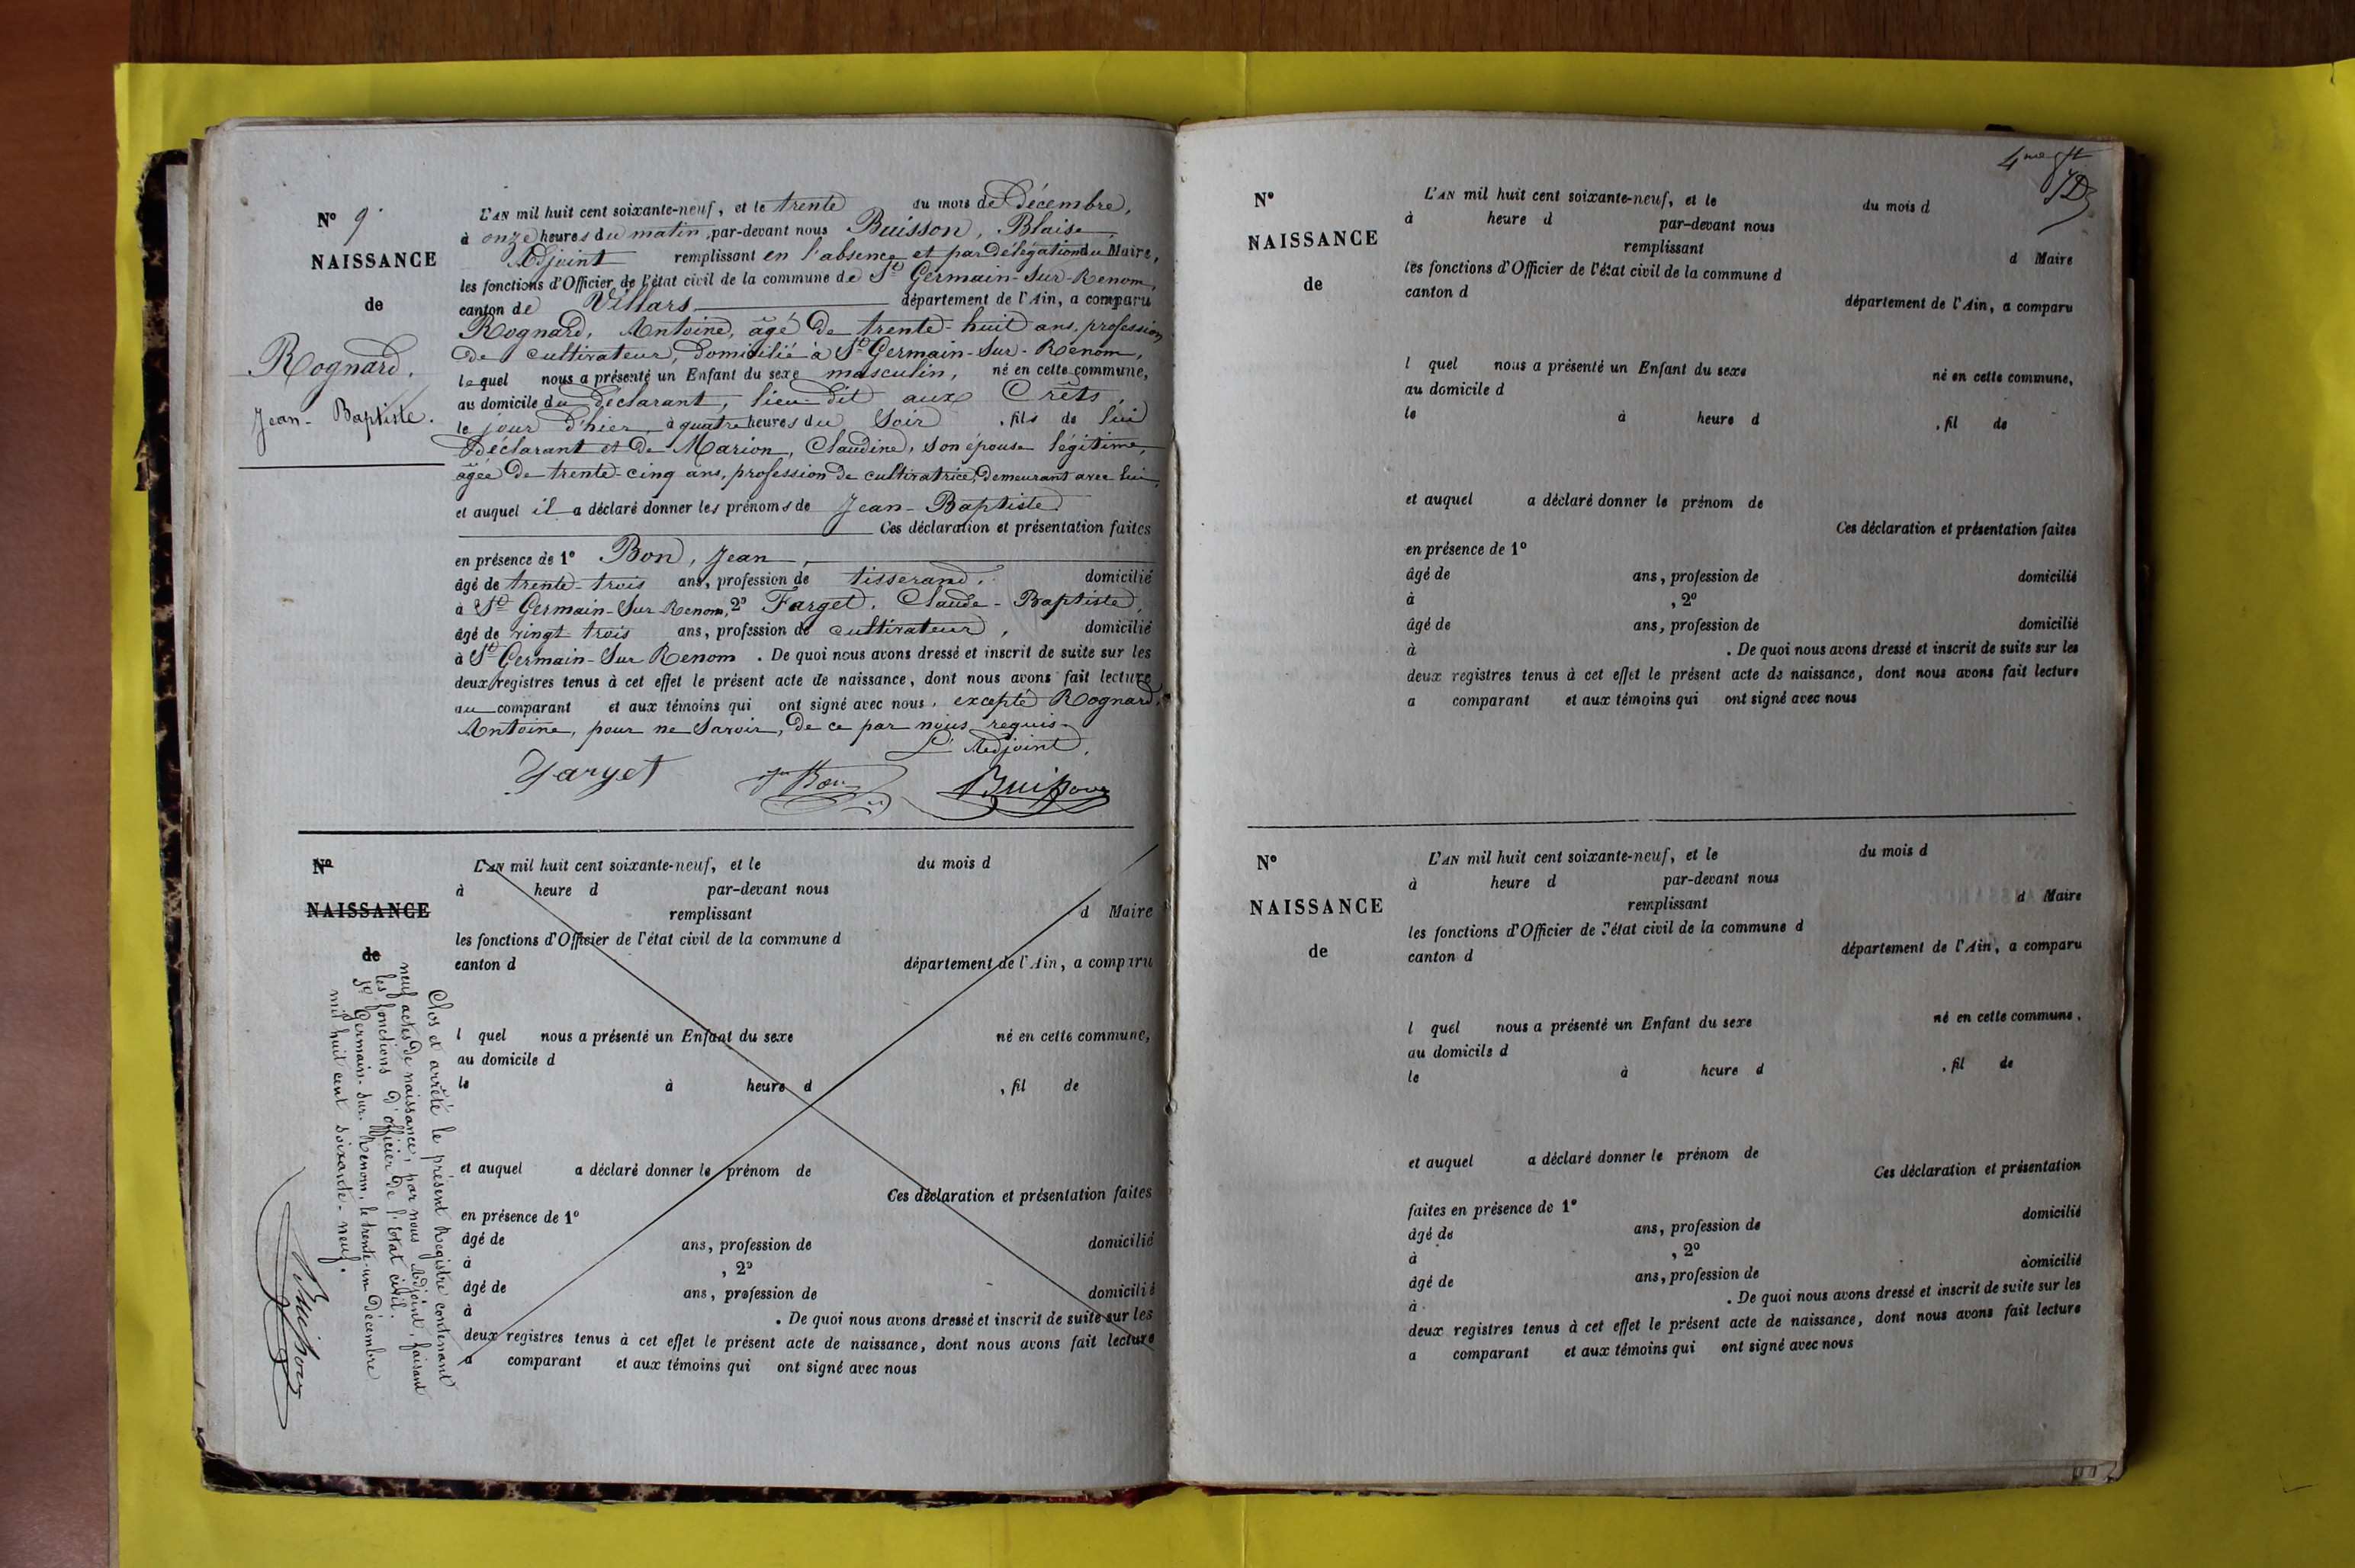 N° 9.
NAISSANCE
de
Rognard,
Jean-Baptiste.
L'AN mil huit cent soixante-neuf, et le trente du mois de Décembre,
à onze heures du matin, par-devant nous Buisson, Blaise,
Adjoint remplissant en l'absence et par Délégation du Maire,
les fonctions d'Officier de l'état civil de la commune de St Germain-Sur-Renom,
canton de Villars département de l'Ain, a comparu
Rognard, Antoine, âgé de trente-huit ans, profession
de cultivateur, domicilié à St Germain-Sur-Renom,
lequel nous a présenté un Enfant du sexe masculin, né en cette commune,
au domicile du déclarant, lieu dit aux Crêts,
le jour d'hier, à quatre heures du Soir, fils de lui
Déclarant et de Marion, Claudine, son épouse légitime,
âgée de trente-cinq ans, profession de cultivatrice, demeurant avec lui,
et auquel il a déclaré donner les prénoms de Jean-Baptiste
Ces déclaration et présentation faites
en présence de 1° Bon, Jean,
âgé de trente-trois ans, profession de tisserand, domicilié
à St Germain-Sur-Renom, 2° Farget, Claude-Baptiste,
âgé de vingt trois ans, profession de cultivateur, domicilié
à St Germain-Sur Renom. De quoi nous avons dressé et inscrit de suite sur les
deux registres tenus à cet effet le présent acte de naissance, dont nous avons fait lecture
au comparant et aux témoins qui ont signé avec nous, excepté Rognard,
Antoine, pour ne Savoir, de ce par nous requis.
L'Adjoint,
Farget Bon Buisson
N°
NAISSANCE
de
L'AN mil huit cent soixante-neuf, et le du mois d
à heure d par-devant nous
remplissant d Maire
les fonctions d'Officier de l'état civil de la commune d
canton d département de l'Ain, a comparu
l quel nous a présenté un Enfant du sexe né en cette commune,
au domicile d
le à heure d , fil de
et auquel a déclaré donner le prénom de
Ces déclaration et présentation faites
en présence de 1°
âgé de ans, profession de domicilié
à , 2°
âgé de ans, profession de domicilié
à . De quoi nous avons dressé et inscrit de suite sur les
deux registres tenus à cet effet le présent acte de naissance, dont nous avons fait lecture
a comparant et aux témoins qui ont signé avec nous
Clos et arrêté le présent Registre contenant
neuf actes de naissance, par nous Adjoint, faisant
les fonctions d'officier de l'état civil.
St Germain-Sur-Renom, le trente-un Décembre
mil huit cent soixante-neuf.
Buisson
4me ft
N°
NAISSANCE
de
L'AN mil huit cent soixante-neuf, et le du mois d
à heure d par-devant nous
remplissant d Maire
les fonctions d'Officier de l'état civil de la commune d
canton d département de l'Ain, a comparu
l quel nous a présenté un Enfant du sexe né en cette commune,
au domicile d
le à heure d , fil de
et auquel a déclaré donner le prénom de
Ces déclaration et présentation faites
en présence de 1°
âgé de ans, profession de domicilié
à , 2°
âgé de ans, profession de domicilié
à . De quoi nous avons dressé et inscrit de suite sur les
deux registres tenus à cet effet le présent acte de naissance, dont nous avons fait lecture
a comparant et aux témoins qui ont signé avec nous
N°
NAISSANCE
de
L'AN mil huit cent soixante-neuf, et le du mois d
à heure d par-devant nous
remplissant d Maire
les fonctions d'Officier de l'état civil de la commune d
canton d département de l'Ain, a comparu
l quel nous a présenté un Enfant du sexe né en cette commune,
au domicile d
le à heure d , fil de
et auquel a déclaré donner le prénom de
Ces déclaration et présentation
faites en présence de 1°
âgé de ans, profession de domicilié
à , 2°
âgé de ans, profession de domicilié
à . De quoi nous avons dressé et inscrit de suite sur les
deux registres tenus à cet effet le présent acte de naissance, dont nous avons fait lecture
a comparant et aux témoins qui ont signé avec nous